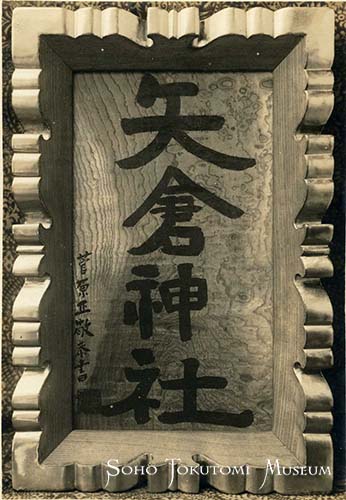 矢倉神社
菅原正敬
SOHO TOKUTOMI MUSEUM